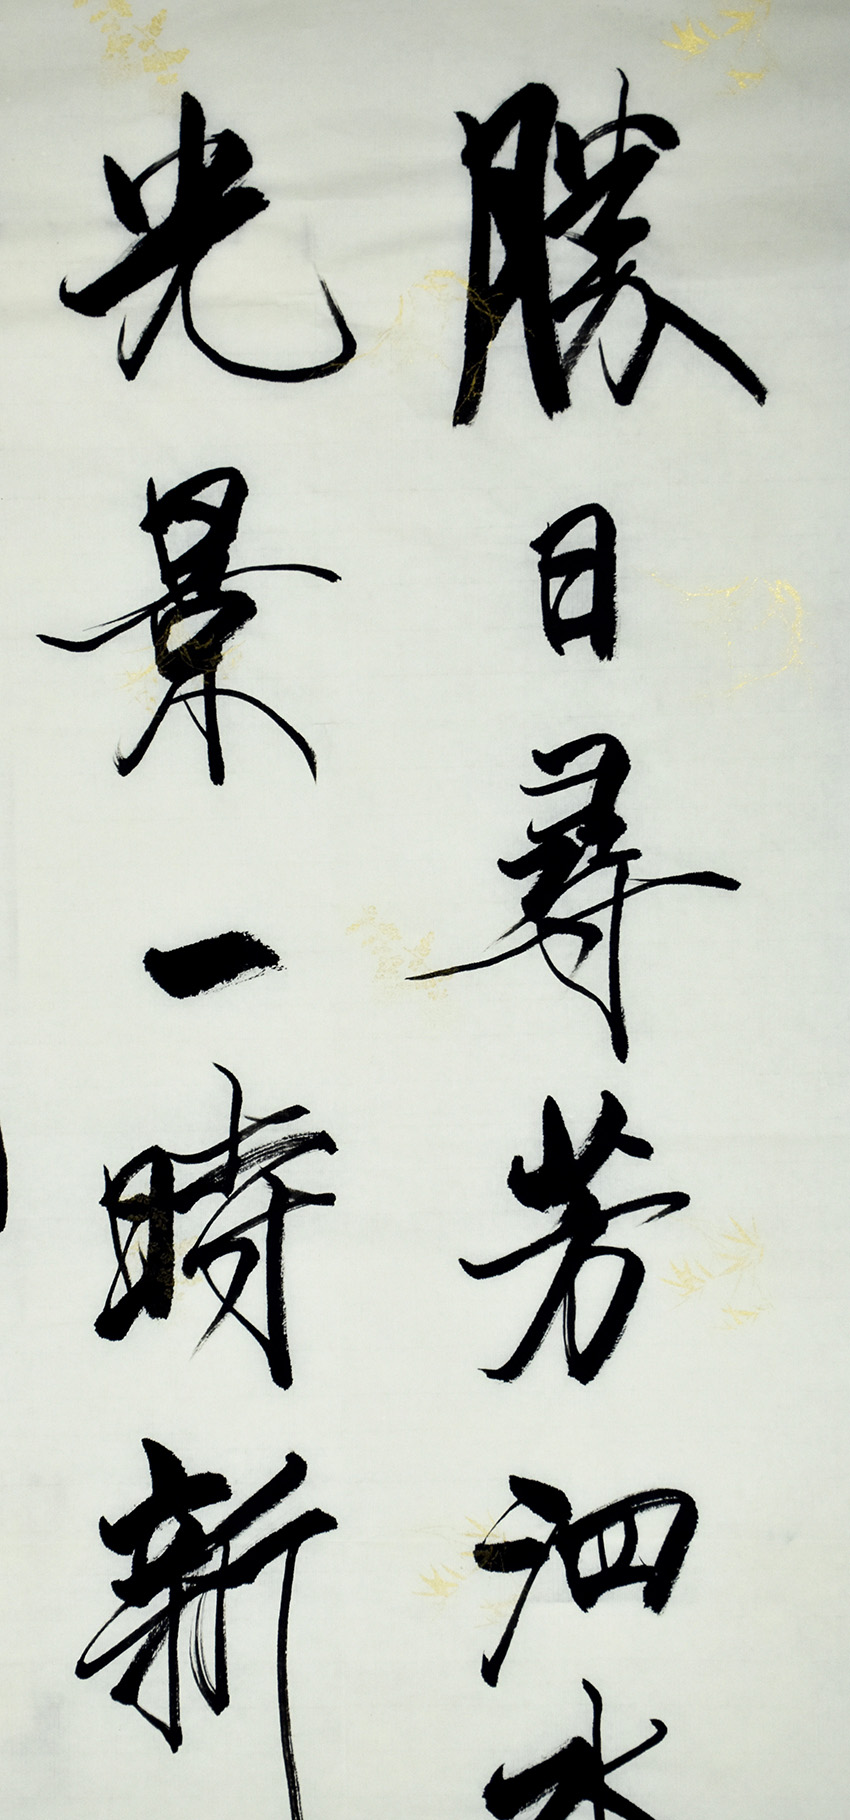 勝日尋芳泗水
光景一時新